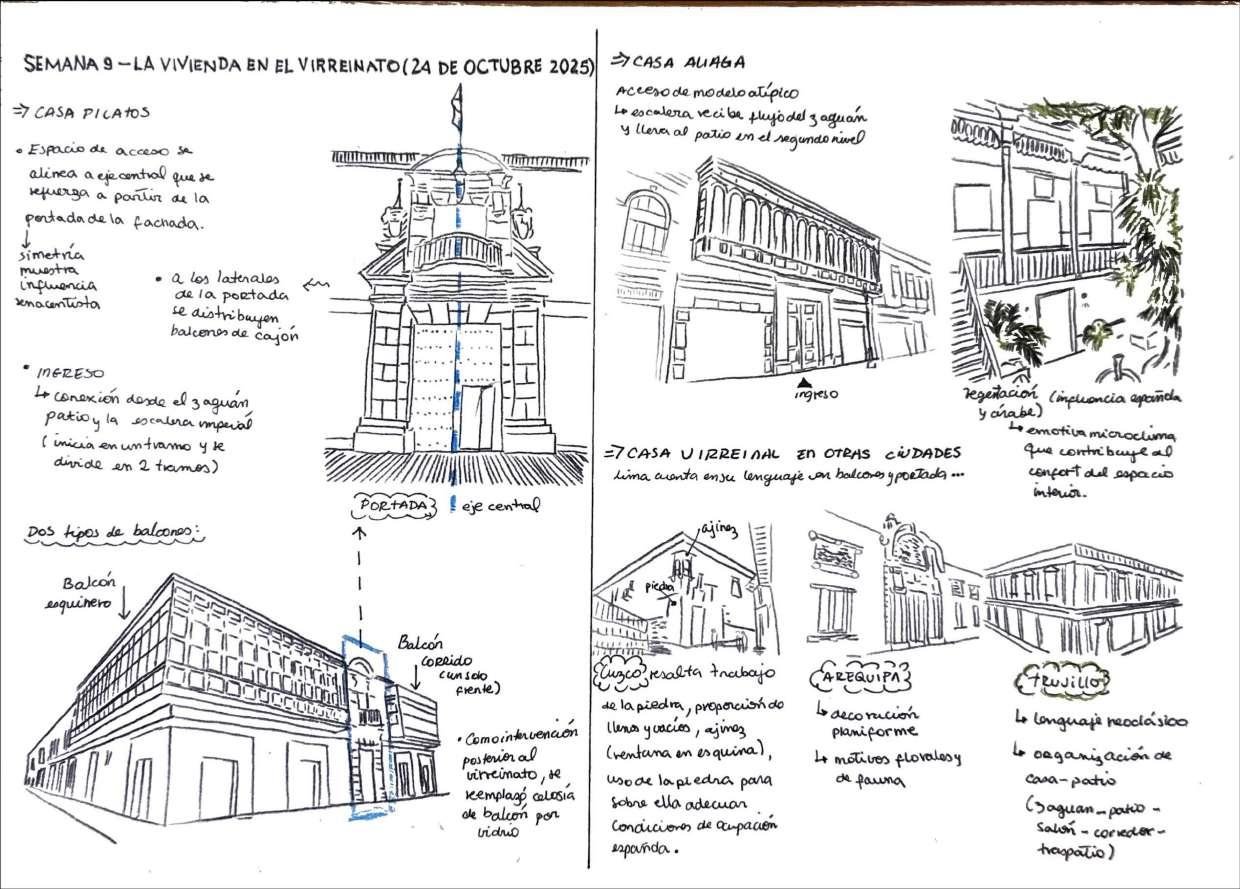 SEMANA 9 – LA VIVIENDA EN EL VIRREINATO (24 DE OCTUBRE 2025)
⇒ CASA PILATOS
• Espacio de acceso se
alinea a eje central que se
refuerza a partir de la
portada de la fachada.
↓
simetría
muestra
influencia
renacentista
• a los laterales
de la portada
se distribuyen
balcones de cajón
• INGRESO
↳ conexión desde el zaguán
patio y la escalera imperial
(inicia en un tramo y se
divide en 2 tramos)
PORTADA
eje central
Dos tipos de balcones:
Balcón
esquinero
Balcón
corrido
(un solo
frente)
• Como intervención
posterior al
virreinato, se
reemplazó celosía
de balcón por
vidrio
⇒ CASA ALIAGA
Acceso de modelo atípico
↳ escalera recibe flujo del zaguán
y lleva al patio en el segundo nivel
ingreso
vegetación (influencia española
y árabe)
↳ emotiva microclima
que contribuye al
confort del espacio
interior.
⇒ CASA VIRREINAL EN OTRAS CIUDADES
Lima cuenta en su lenguaje en balcones y portada ...
ajinez
piedra
Cuzco: resalta trabajo
de la piedra, proporción de
llenos y vacíos, ajinez
(ventana en esquina),
uso de la piedra para
sobre ella adecuar
condiciones de ocupación
española.
AREQUIPA
↳ decoración
planiforme
↳ motivos florales y
de fauna
TRUJILLO
↳ lenguaje neoclásico
↳ organización de
casa-patio
(zaguan-patio-
salón-corredor-
traspatio)